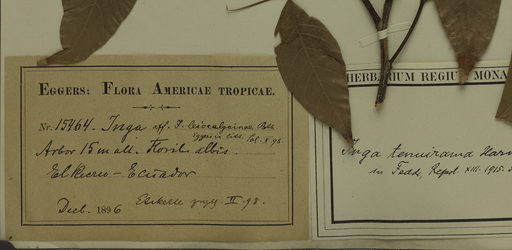 EGGERS: FLORA AMERICAE TROPICAE.
Nr. 15464. Inga aff. I. leiocalycinae Bth.
Eggers in litt.
Arbor 15 m alt. Florib. albis.
El Recreo - Ecuador
Dect. 1896
HERBARIUM REGIUM MONA
Inga tenuirama Harms
in Fedde, Repert. XIII. 1915.